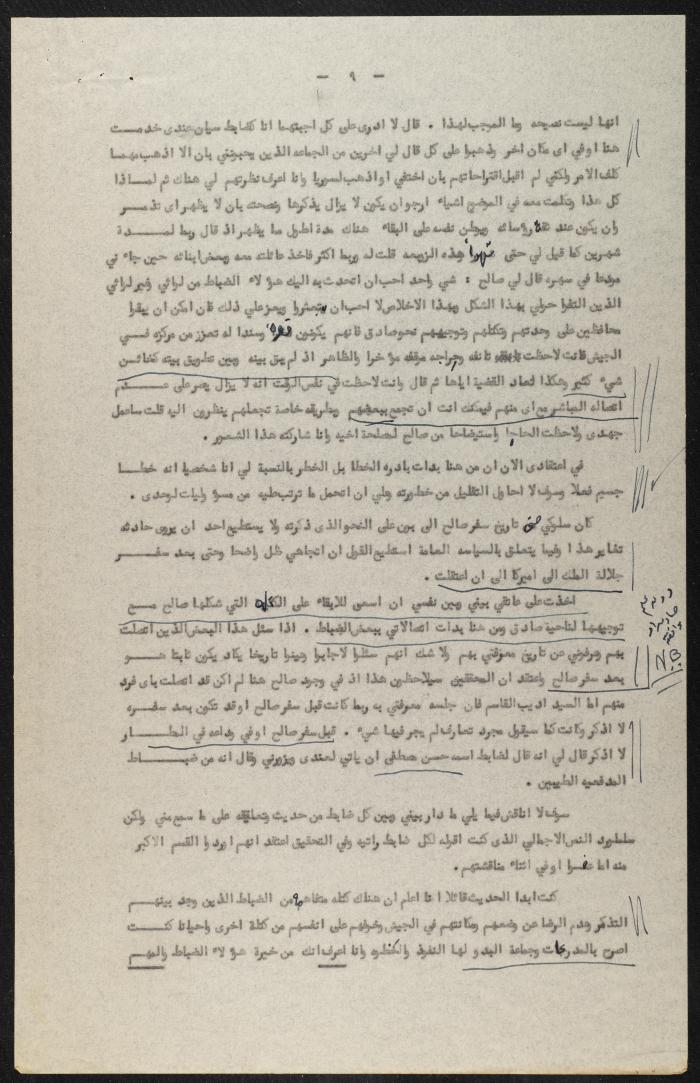 - ٩ -
انها ليست نصيحه وما الموجب لهذا . قال لا ادري على كل اجبتهما انا كضابط سيان عندي خدمــت
هنا او في اي مكان اخر وذهبوا على كل قال لي اخرين من الجماعه الذين يحبونني بان الا اذهب مهما
كلف الامر ولكني لم اقبل اقتراحاتهم بان اختفي او اذهب لسوريا وانا اعرف نظرتهم لي هناك ثم لمــاذا
كل هذا وتكلمت معه في الموضوع اشياء ارجو ان يكون لا يزال يذكرها ونصحته بان لا يظهر اي تذمــر
وان يكون عند ثقة رؤسائه ويوطن نفسه على البقاء هناك مدة اطول ما يظهر اذ قال ربما لمــدة
شهرين كما قيل لي حتى هذه الزوبعه قلت له وربما اكثر فاخذ عائلته معه وبعض ابنائه حين جاء ني
مودعا في سهره قال لي صالح : شيء واحد احب ان اتحدث به اليك هؤلاء الضباط من لوائي وغير لوائي
الذين التفوا حولي بهذا الشكل وبهذا الاخلاص لا احب ان يتبعثروا ويعز علي ذلك فان امكن ان يبقوا
محافظين على وحدتهم وتكتلهم وتوجيههم نحو صادق فانهم يكونون قوة وسندا له تعزز من مركزه فــي
الجيش فانت لاحظت موقفه مؤخرا والظاهر اذ لم يبق بينه وبين تطويق بيته كخائــن
شيء كثير وهكذا تعاد القضية اياها ثم قال وانت لاحظت في نفس الوقت انه لا يزال يصر على عــدم
اتصاله المباشر مع اي منهم فيمكنك انت ان تجمع ببعضهم وبطريقه خاصة تجعلهم ينظرون اليه قلت ساعمل
جهدي ولاحظت الحاحا واسترضاحا من صالح لمصلحة اخيه وانا شاركته هذا الشعور .
في اعتقادي الان ان من هنا بدات بادره الخطا بل الخطر بالنسبة لي انا شخصيا انه خطــا
جسيم فعلا وسوف لا احاول التقليل من خطورته وعلي ان اتحمل ما ترتب عليه من مسؤوليات لوحدي .
كان سلوكي حتى تاريخ سفر صالح الى بون على النحو الذي ذكرته ولا يستطيع احد ان يروي حادثه
تغاير هذا وفيما يتعلق بالسياسه العامة استطيع القول ان اتجاهي ظل واضحا وحتى بعد سفــر
جلالة الملك الى اميركا الى ان اعتقلت .
اخذت على عاتقي بيني وبين نفسي ان اسعى للابقاء على الكتله التي شكلها صالح مــع
توجيهها لناحية صادق ومن هنا بدات اتصالاتي ببعض الضباط . اذا سئل هذا البعض الذين اتصلت
بهم وعرفوني عن تاريخ معرفتي بهم ولا شك انهم سئلوا لاجابوا وعينوا تاريخا يكاد يكون ثابتا هــو
بعد سفر صالح واعتقد ان المحققين سيلاحظون هذا اذ في وجود صالح هنا لم اكن قد اتصلت باي فرد
منهم اما السيد اديب القاسم فان جلسه معرفتي به ربما كانت قبل سفر صالح او قد تكون بعد سفــره
لا اذكر وكانت كما سيقول مجرد تعارف لم يجر فيها شيء . قبل سفر صالح او في وداعه في المطــار
لا اذكر قال لي انه قال لضابط اسمه حسن مصطفى ان ياتي لعندي ويزورني وقال انه من ضبــاط
المدفعيه الطيبين .
سوف لا اناقش فيما يلي ما دار بيني وبين كل ضابط من حديث وتعليقه على ما سمع مني ولكن
ساورد النص الاجمالي الذي كنت اقوله لكل ضابط رأيته وفي التحقيق اعتقد انهم اوردوا القسم الاكبر
منه اما عفوا او في اثناء مناقشتهم .
كنت ابدا الحديث قائلا انا اعلم ان هناك كتله متفاهمه من الضباط الذين وجد بينهــم
التذمر وعدم الرضا عن وضعهم ومكانتهم في الجيش وخوفهم على انفسهم من كتلة اخرى واحيانا كنــت
اصرح بالمدرعات وجماعة البدو لها النفوذ والحظوه وانا اعرف انك من خيرة هؤلاء الضباط والمهــم